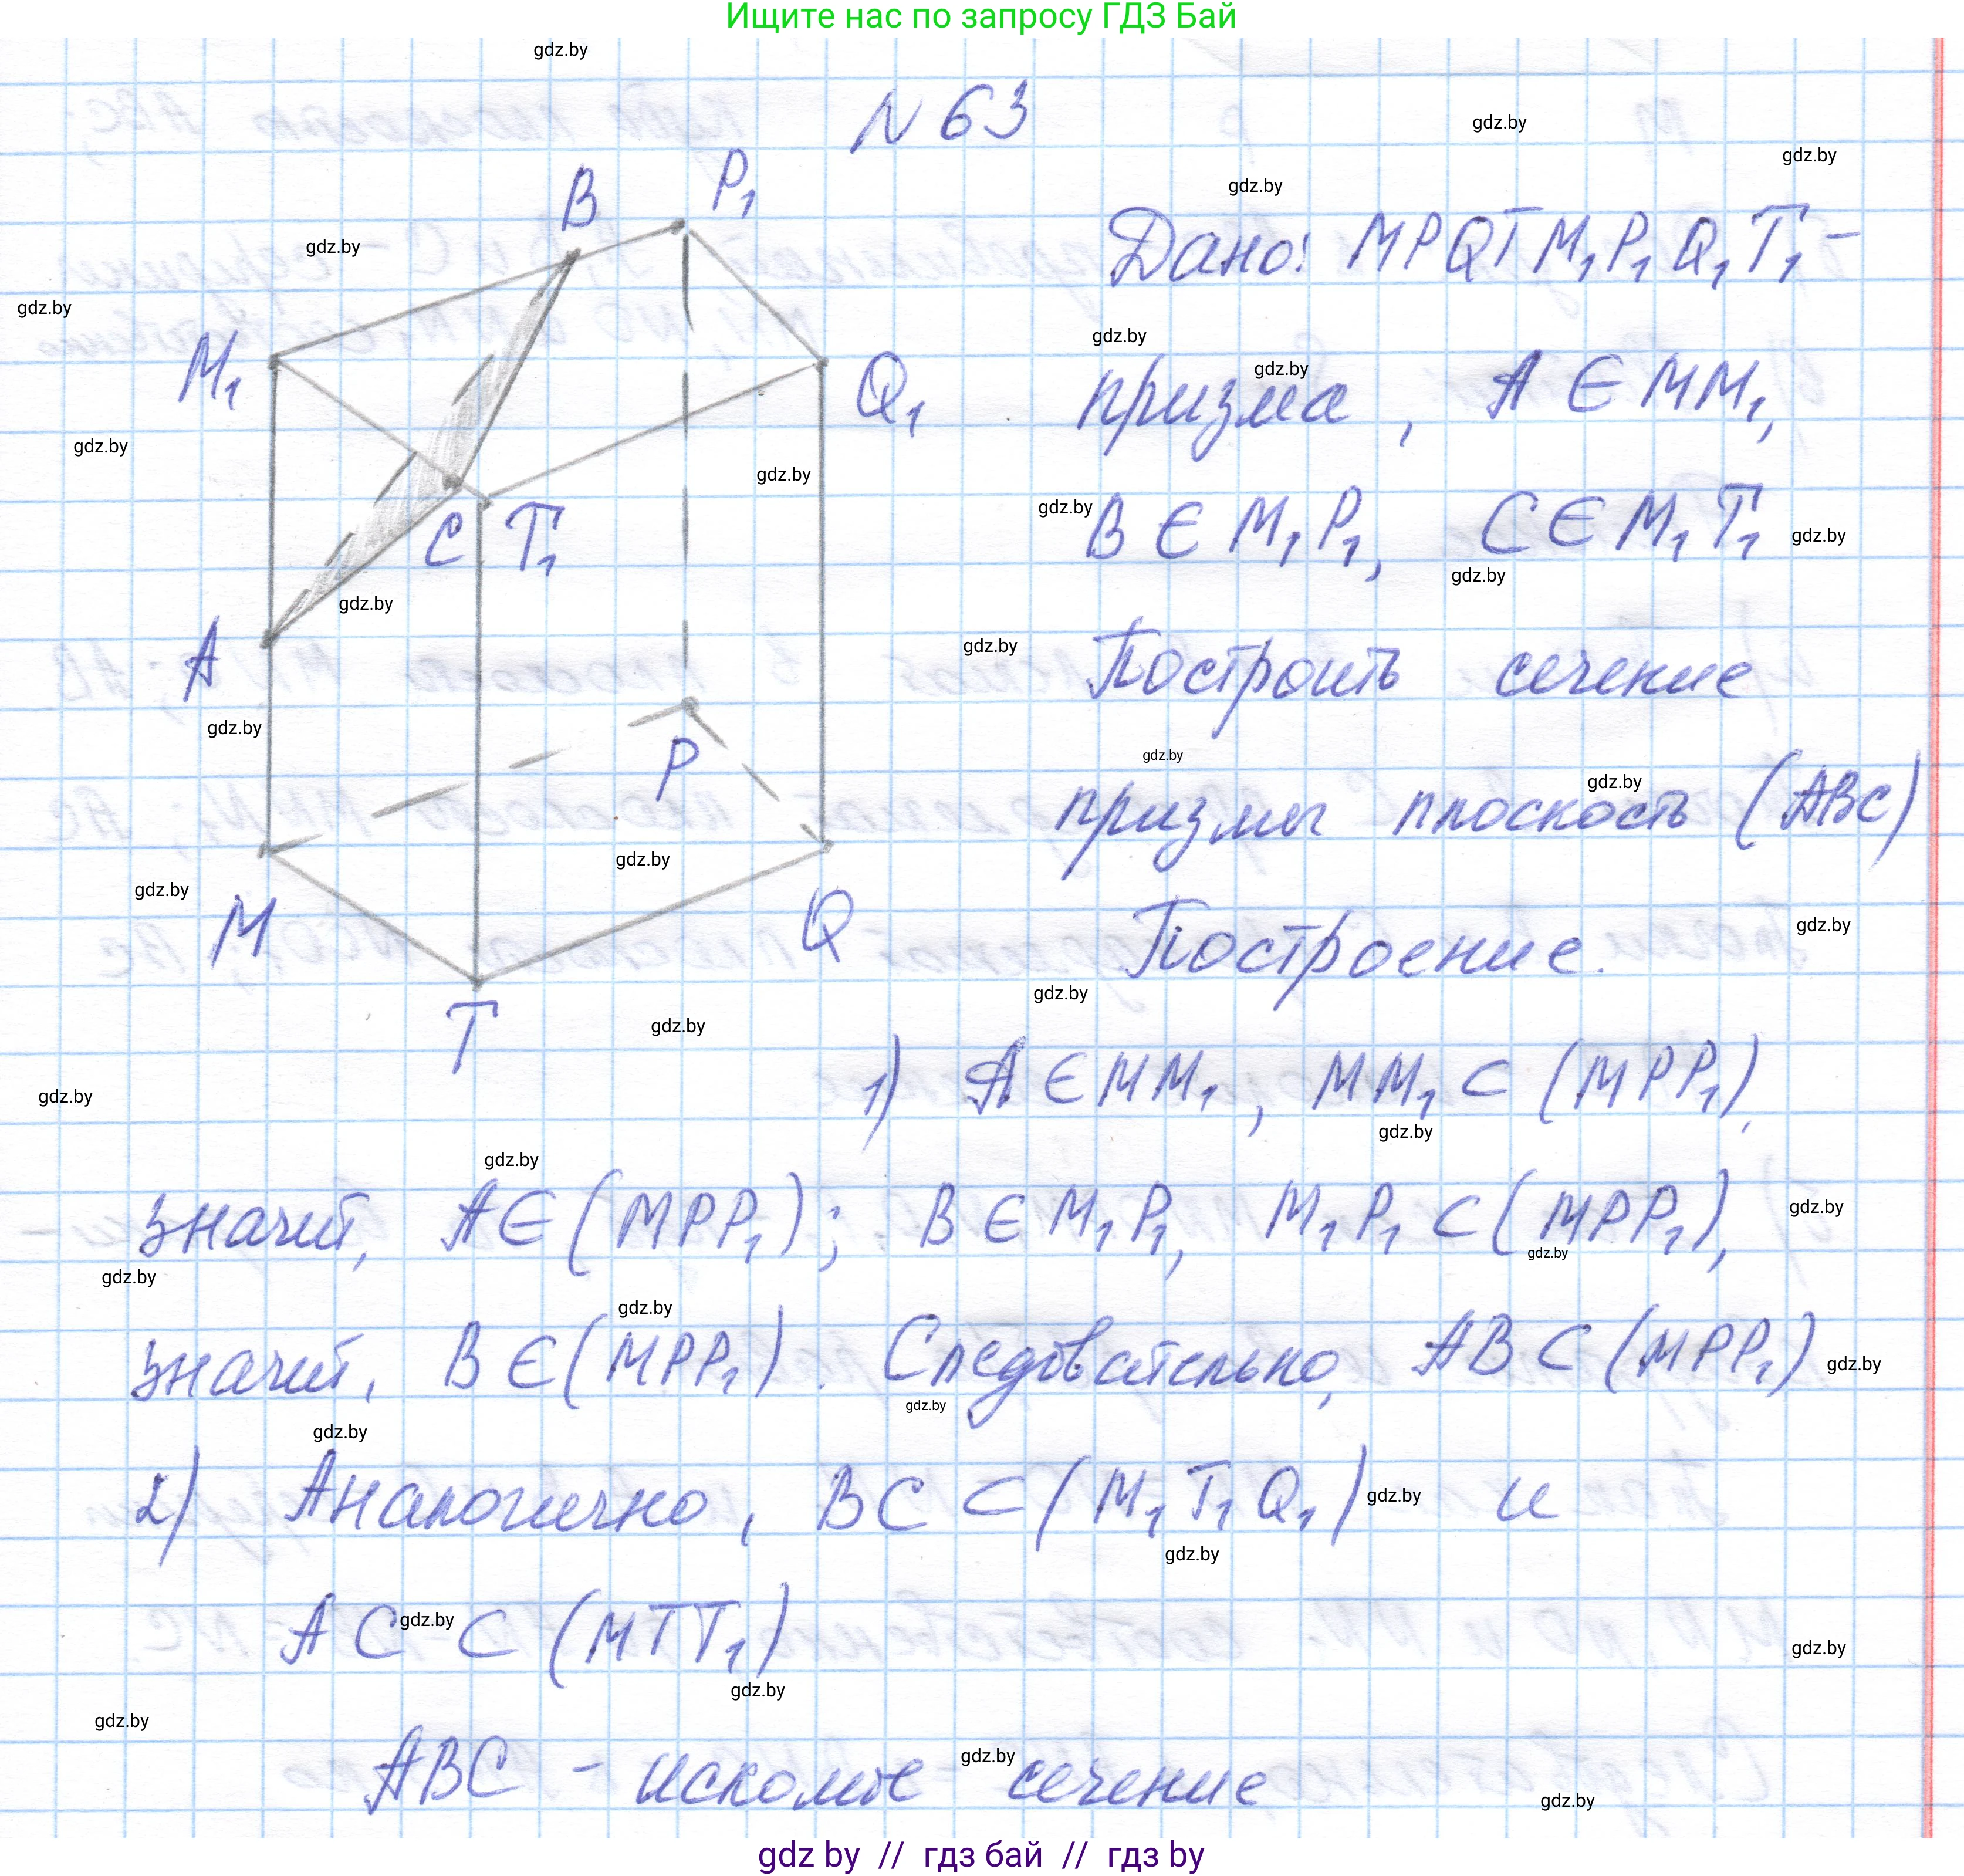 Ищите нас по запросу ГДЗ Бай
N 63
B P₁
M₁ Q₁
C T₁
A
P
M Q
T
Дано: MPQTM₁P₁Q₁T₁ -
призма, A ∈ MM₁,
B ∈ M₁P₁, C ∈ M₁T₁
Построить сечение
призмы плоскость (ABC)
Построение.
1) A ∈ MM₁, MM₁ ⊂ (MPP₁),
значит, A ∈ (MPP₁); B ∈ M₁P₁, M₁P₁ ⊂ (MPP₁),
значит, B ∈ (MPP₁). Следовательно, AB ⊂ (MPP₁)
2) Аналогично, BC ⊂ (M₁T₁Q₁) и
AC ⊂ (MTT₁)
ABC - искомое сечение
gdz by // гдз бай // гдз by